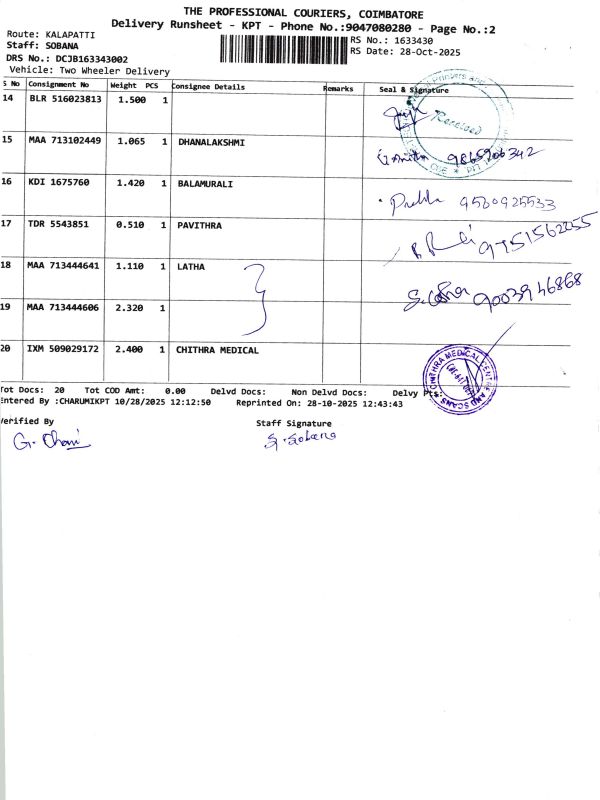 THE PROFESSIONAL COURIERS, COIMBATORE
Delivery Runsheet - KPT - Phone No.:9047080280 - Page No.:2
Route: KALAPATTI
RS No.: 1633430
Staff: SOBANA
RS Date: 28-Oct-2025
DRS No.: DCJB163343002
Vehicle: Two Wheeler Delivery
S No Consignment No Weight PCS Consignee Details Remarks Seal & Signature
14 BLR 516023813 1.500 1
Received
15 MAA 713102449 1.065 1 DHANALAKSHMI
9865206342
16 KDI 1675760 1.420 1 BALAMURALI
9520925533
17 TDR 5543851 0.510 1 PAVITHRA
9751562255
18 MAA 713444641 1.110 1 LATHA
9003946868
19 MAA 713444606 2.320 1
20 IXM 509029172 2.400 1 CHITHRA MEDICAL
CHITHRA MEDICAL CENTRE AND SCANS
Tot Docs: 20 Tot COD Amt: 0.00 Delvd Docs: Non Delvd Docs: Delvy Pts:
Entered By :CHARUMIKPT 10/28/2025 12:12:50 Reprinted On: 28-10-2025 12:43:43
Verified By Staff Signature
G. Dhani S. Sobana